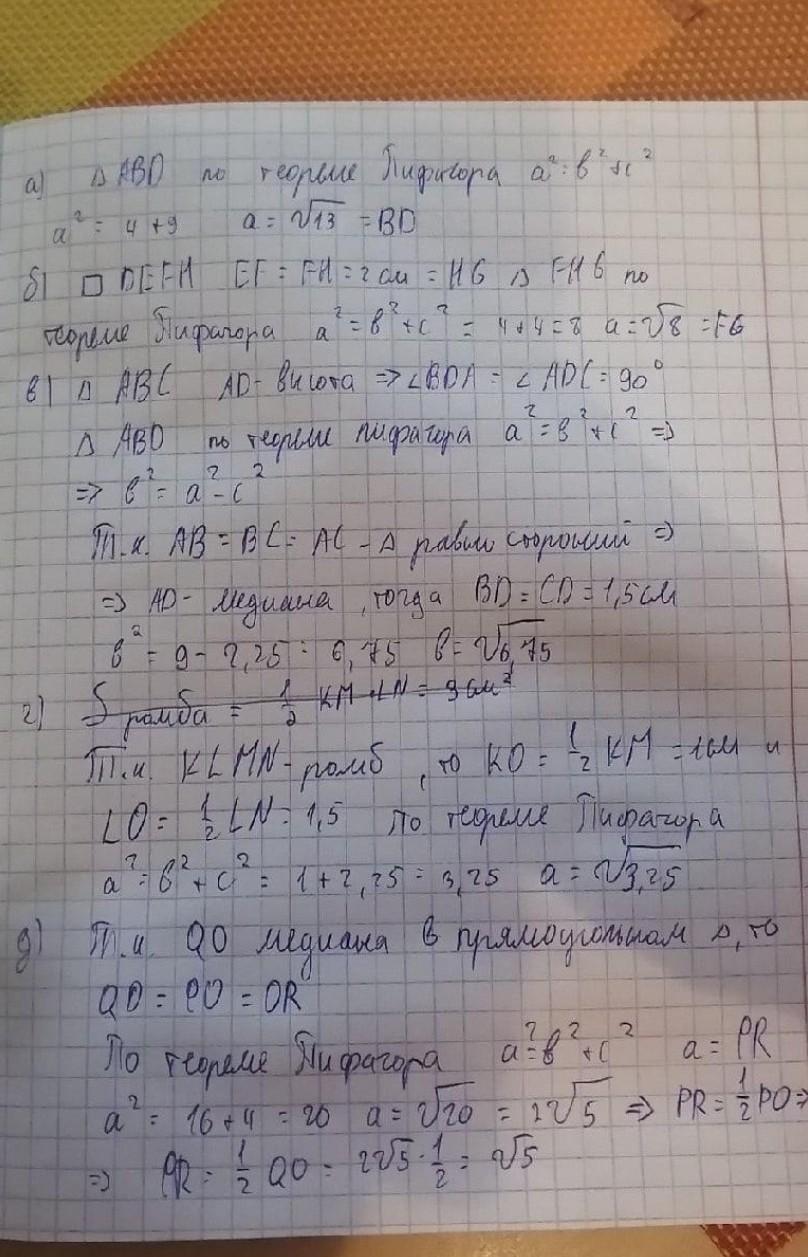 а) Δ ABD по теореме Пифагора a² = b² + c²
a² = 4 + 9 a = √13 = BD
б) □ DEFH EF = FH = 2 см = HG Δ FHG по
теореме Пифагора a² = b² + c² = 4 + 4 = 8 a = √8 = FG
в) Δ ABC AD - висота => ∠BDA = ∠ADC = 90°
Δ ABD по теореме пифагора a² = b² + c² =>
=> b² = a² - c²
Т.к. AB = BC = AC - Δ равносторонний =>
=> AD - медиана, тогда BD = CD = 1,5 см
b² = 9 - 2,25 = 6,75 b = √6,75
г) S ромба = 1/2 KM · LN = 3 см²
Т.к. KLMN - ромб, то KO = 1/2 KM = 1см и
LO = 1/2 LN = 1,5 По теореме Пифагора
a² = b² + c² = 1 + 2,25 = 3,25 a = √3,25
д) Т.к. QO медиана в прямоугольном Δ, то
QO = PO = OR
По теореме Пифагора a² = b² + c² a = PR
a² = 16 + 4 = 20 a = √20 = 2√5 => PR = 1/2 PO =>
=> PR = 1/2 QO = 2√5 · 1/2 = √5